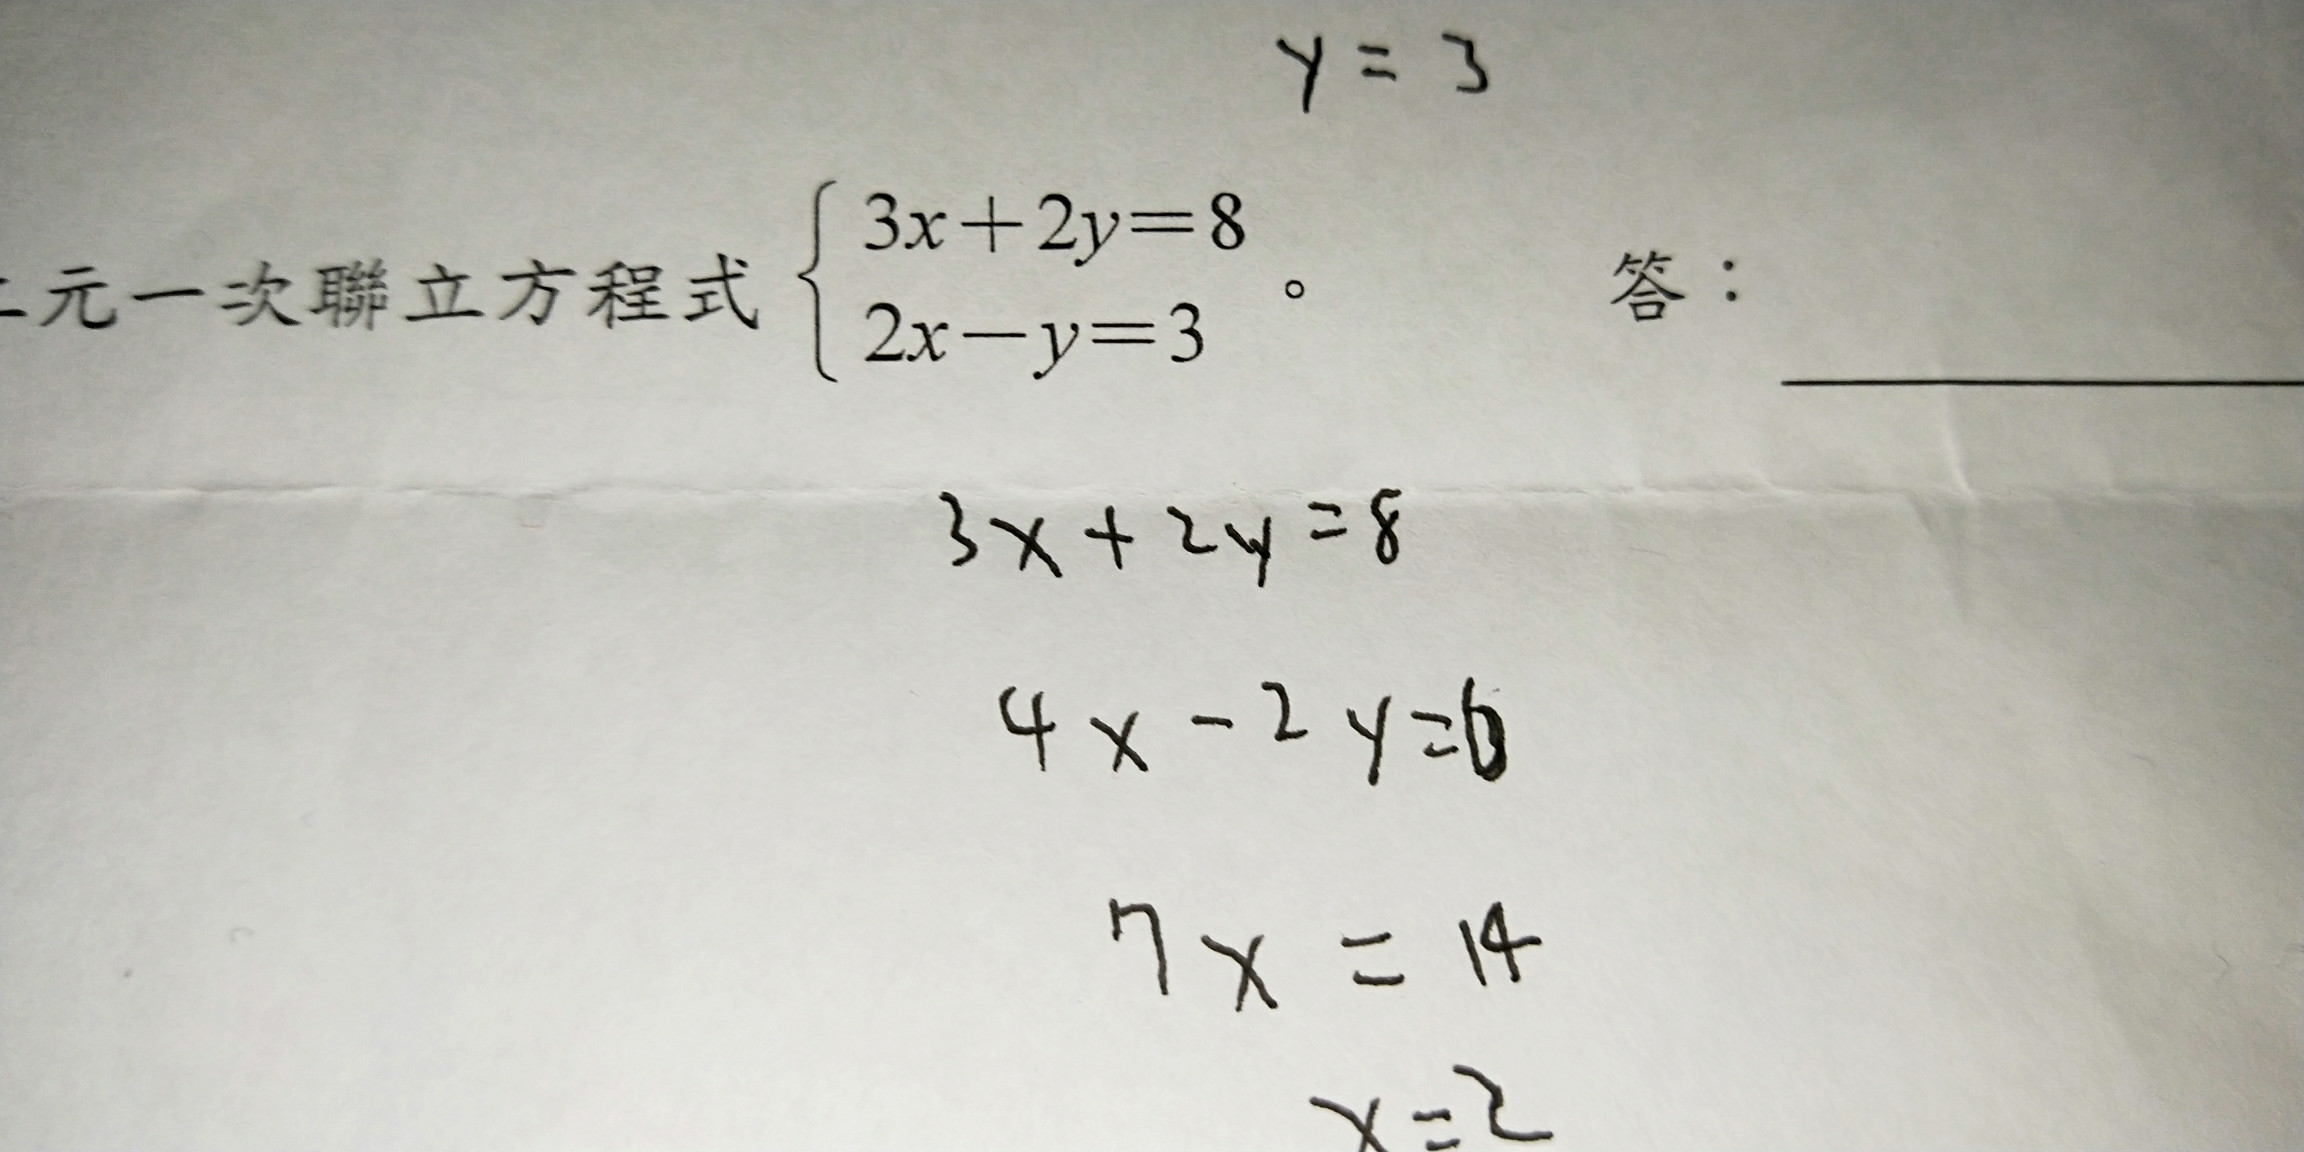 y = 3
二元一次聯立方程式 { 3x+2y=8
2x−y=3 。 答：
3x + 2y = 8
4x - 2y = 6
7x = 14
x = 2